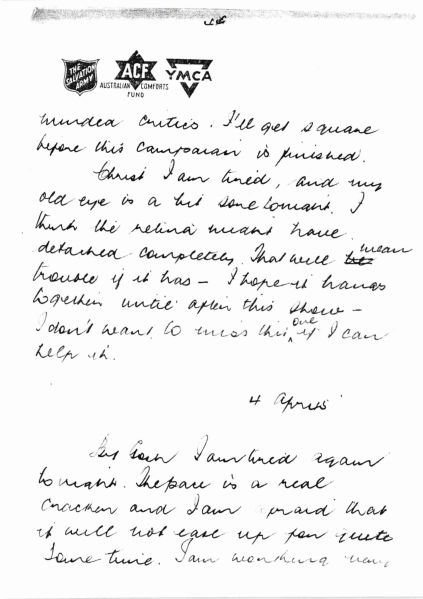 THE SALVATION ARMY
ACF
AUSTRALIAN COMFORTS
FUND
YMCA
minded critics. I'll get square
before this campaign is finished.
Christ I am tired, and my
old eye is a bit sore tonight. I
think the retina might have
detached completely. That will be mean
trouble if it has – I hope it hangs
together until after this show –
I don't want to miss this one if I can
help it.
4 April
By Gosh I am tired again
tonight. The pace is a real
cracker and I am afraid that
it will not ease up for quite
some time. I am working very